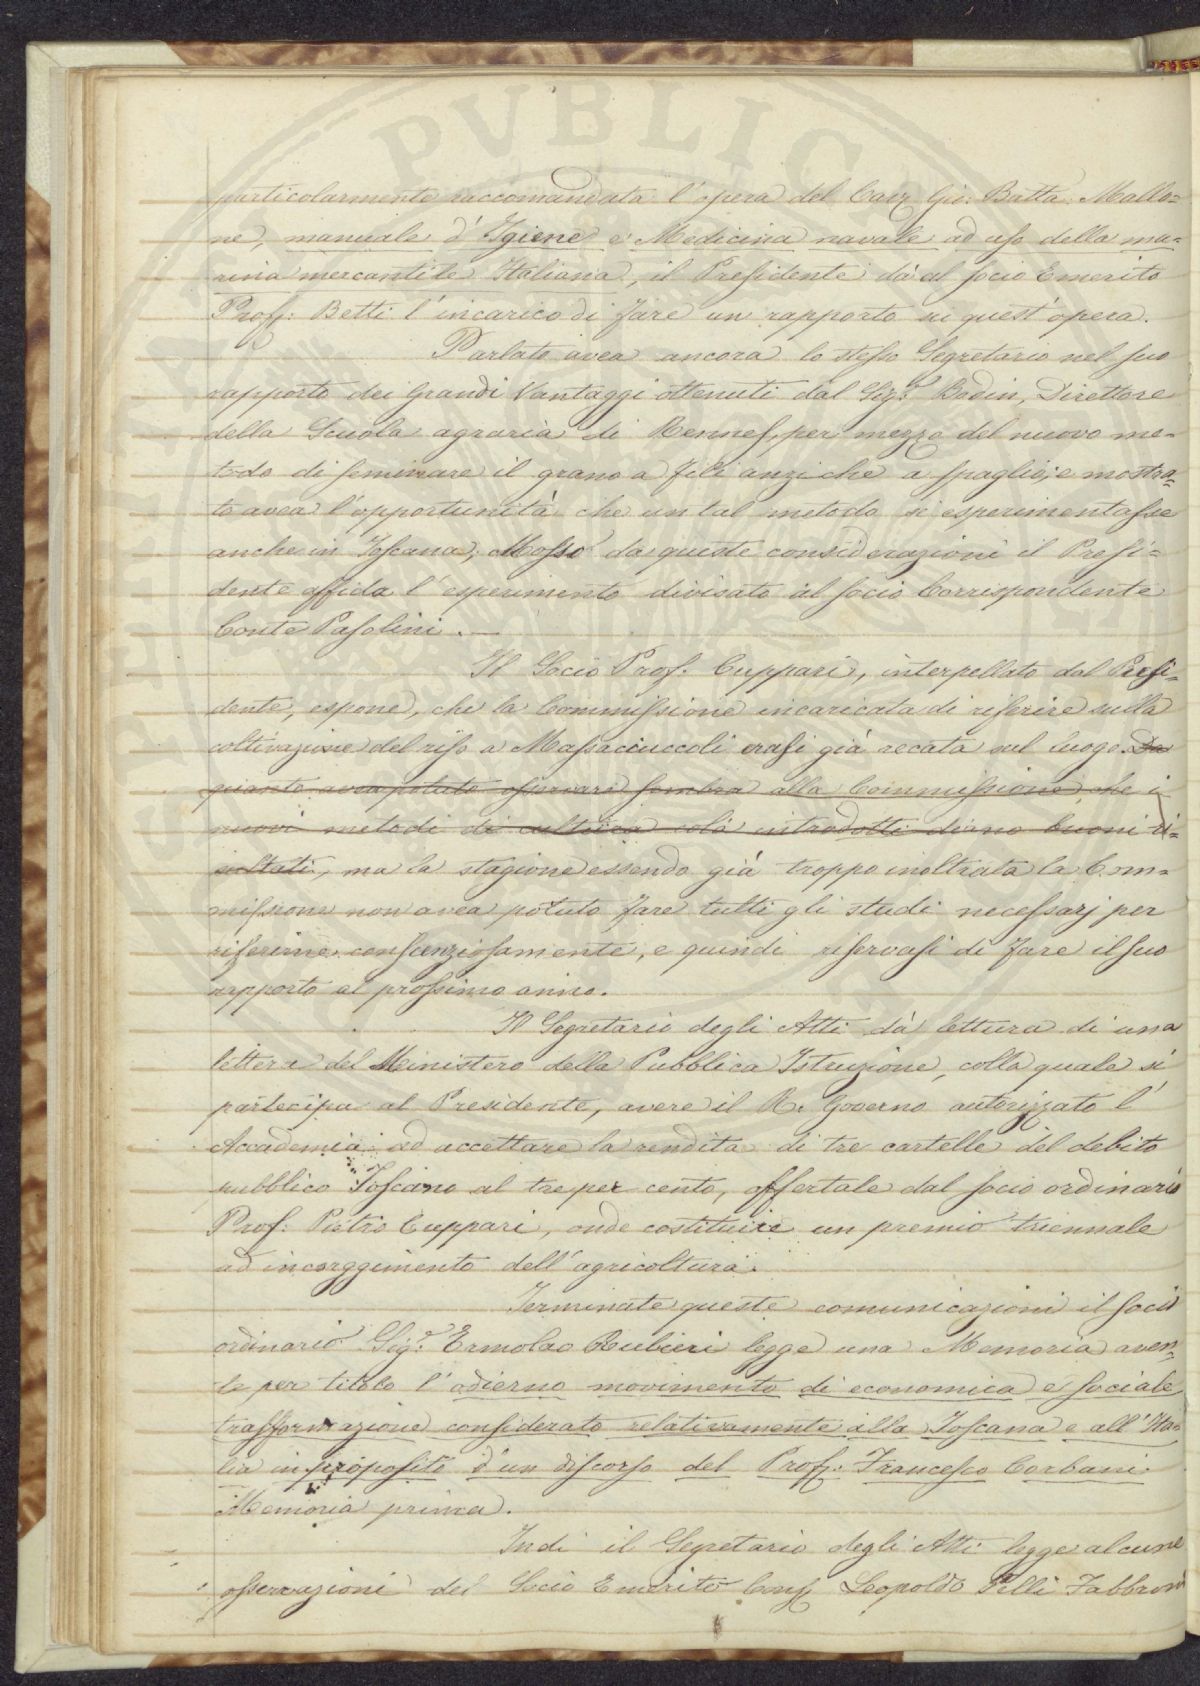 particolarmente raccomandata l'opera del Cav. Gio: Batta. Mallo=
ne, manuale d'Igiene e Medicina navale ad uso della ma=
rina mercantile Italiana, il Presidente dà al socio Emerito
Prof: Betti l'incarico di fare un rapporto su quest'opera.
Parlato avea ancora lo stesso Segretario nel suo
rapporto dei grandi Vantaggi ottenuti dal Sig.r Bodin, Direttore
della Scuola agraria di Rennes, per mezzo del nuovo me=
todo di seminare il grano a fili anziche a spaglio; e mostra=
to avea l'opportunità che un tal metodo si esperimentasse
anche in Toscana; Mosso da queste considerazioni il Presi=
dente affida l'esperimento divisato al socio Corrispondente
Conte Pasolini. —
Il Socio Prof. Cuppari, interpellato dal Presi=
dente, espone, che la Commissione incaricata di riferire sulla
coltivazione del riso a Massaciuccoli erasi già recata sul luogo. Da
quanto avea potuto osservare sembra alla Commissione che i
nuovi metodi di cultura colà introdotti dieno buoni ri=
sultati, ma la stagione essendo già troppo inoltrata la Com=
missione non avea potuto fare tutti gli studi necessarj per
riferirne conscenziosamente, e quindi riservasi di fare il suo
rapporto al prossimo anno.
Il Segretario degli Atti dà lettura di una
lettera del Ministero della Pubblica Istruzione, colla quale si
partecipa al Presidente, avere il R. Governo autorizzato l'
Accademia ad accettare la rendita di tre cartelle del debito
pubblico Toscano al tre per cento, offertale dal socio ordinario
Prof: Pietro Cuppari, onde costituire un premio triennale
ad incoraggimento dell'agricoltura.
Terminate queste comunicazioni il socio
ordinario Sig.r Ermolao Rubieri legge una Memoria aven=
te per titolo l'odierno movimento di economica e sociale
trasformazione considerato relativamente alla Toscana e all'Ita=
lia in proposito d'un discorso del Prof: Francesco Corbani.
Memoria prima.
Indi il Segretario degli Atti legge alcune
osservazioni del Socio Emerito Cons. Leopoldo Pelli Fabbroni